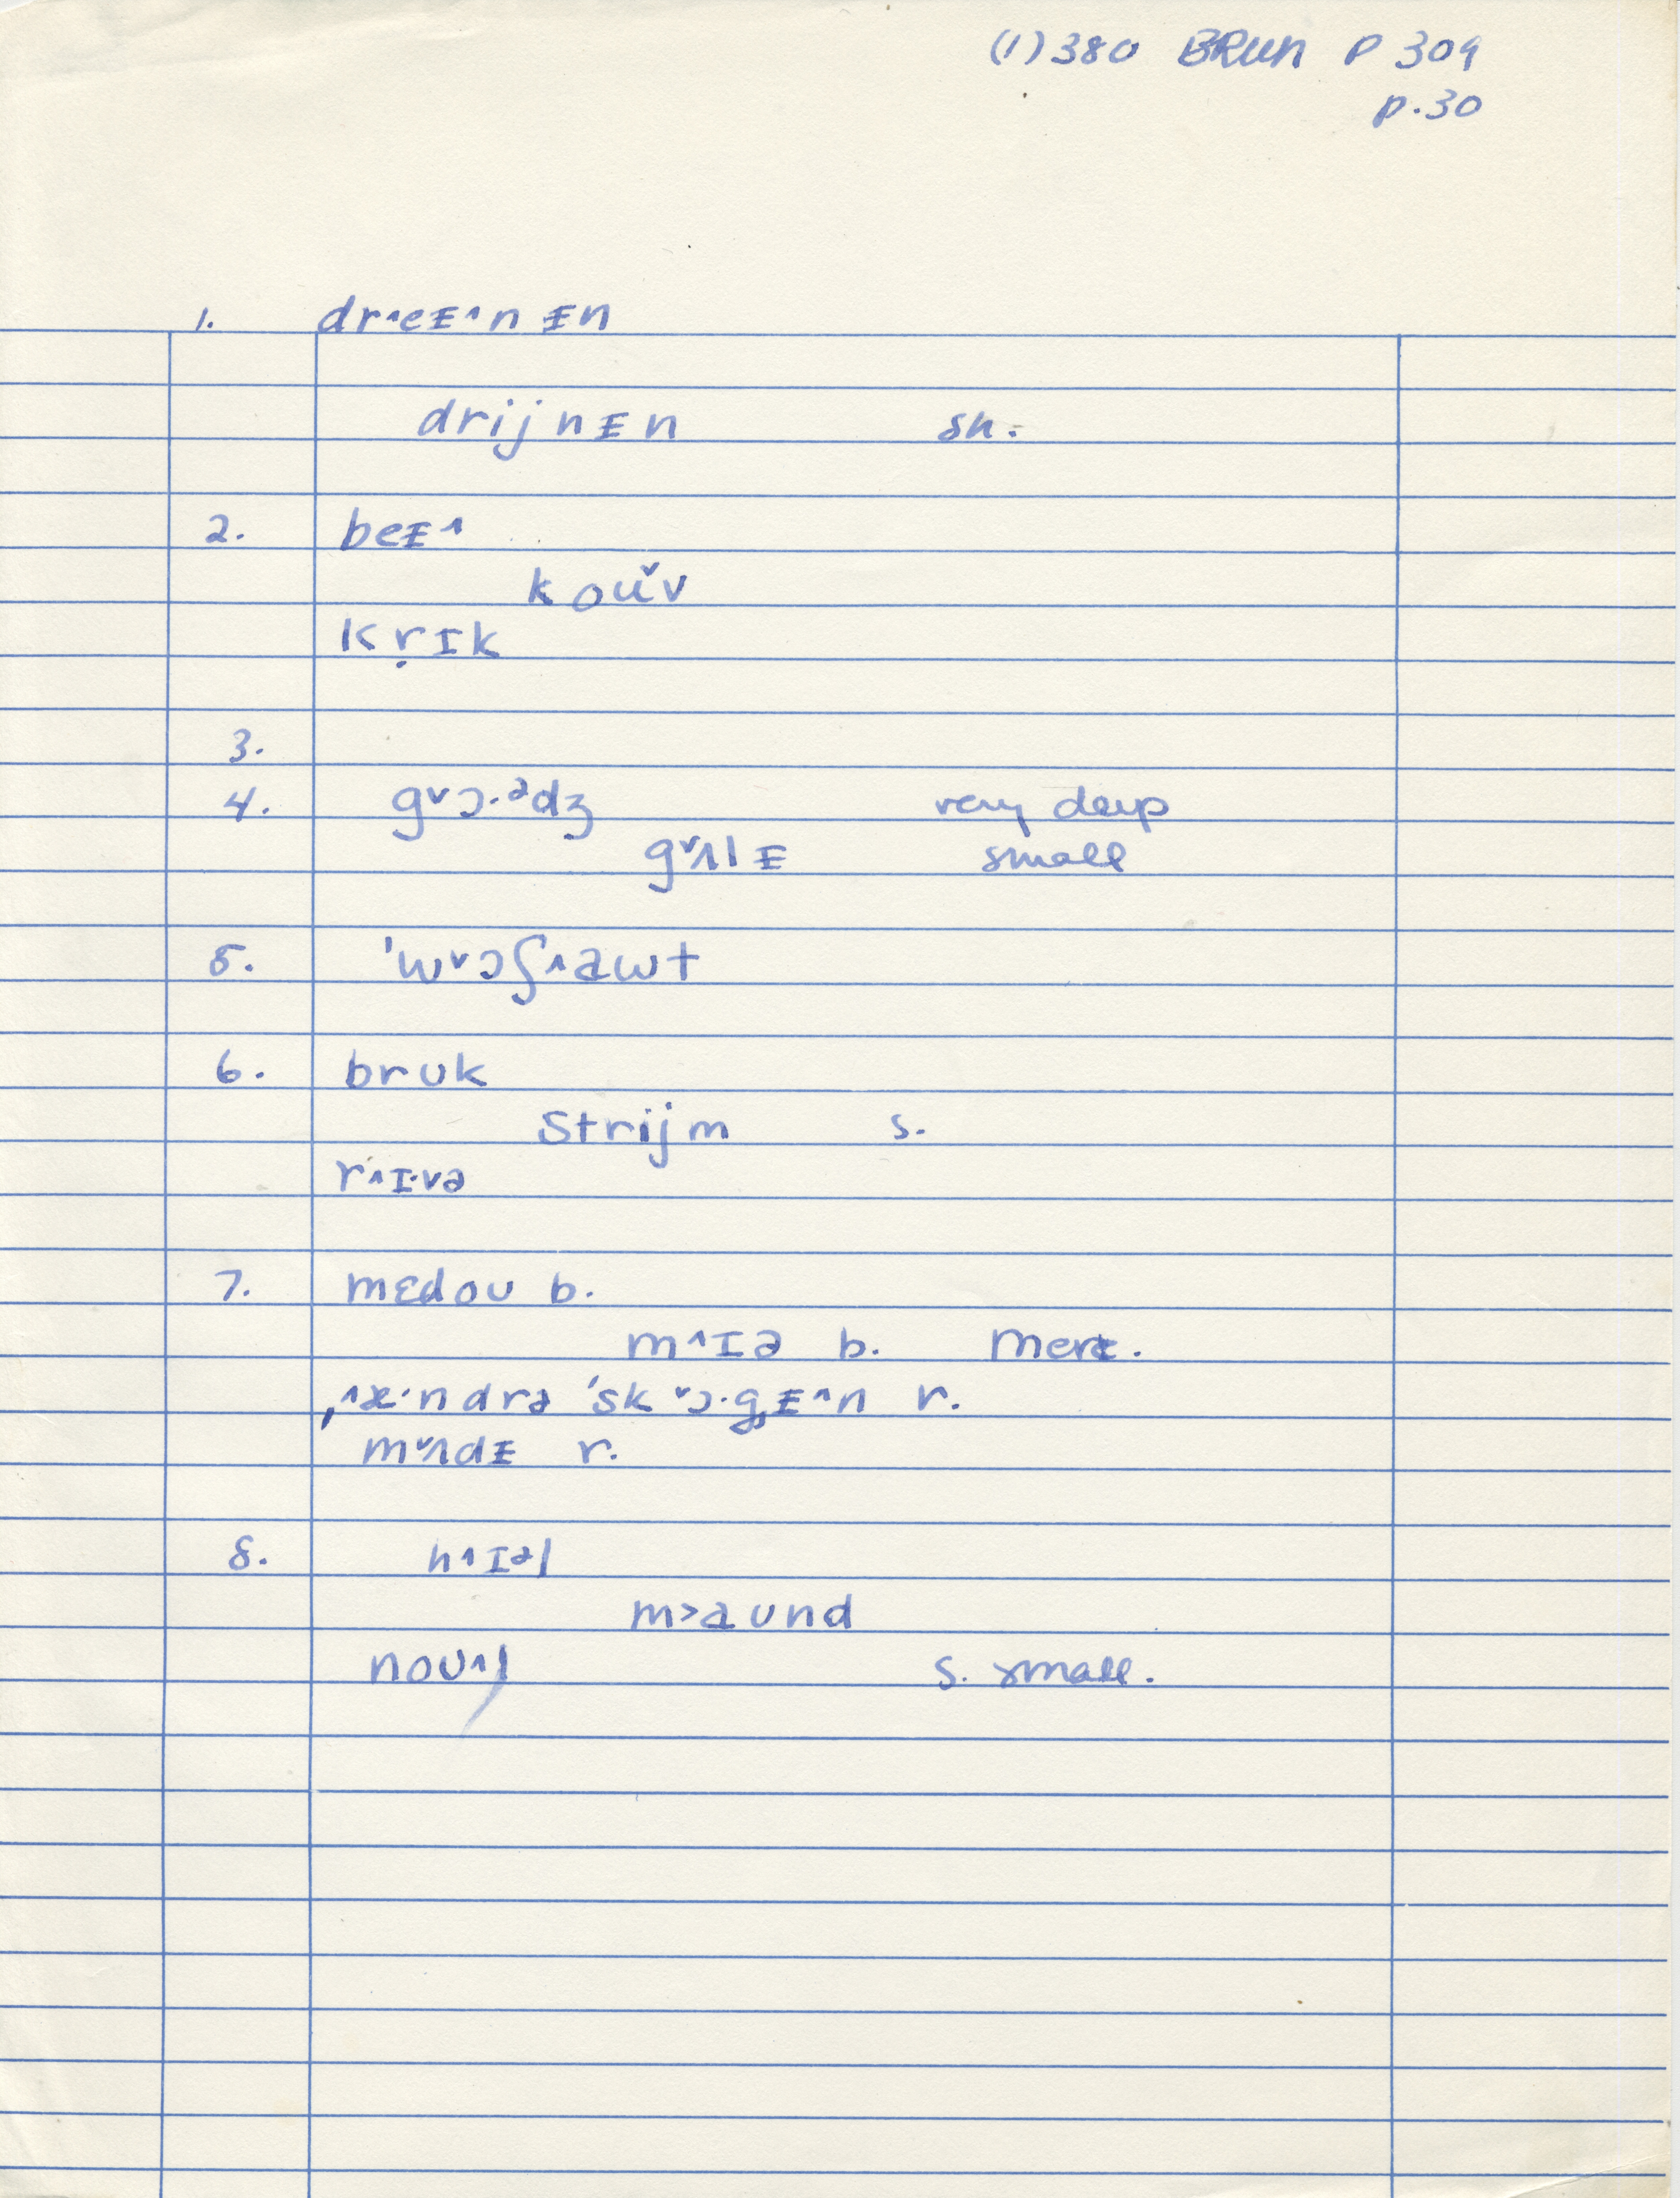 (1)380 BRUN P 309
p.30
1. dr˄eᵻ˄nᵻn
drijnᵻn sn.
2. beᵻ˄
koʊ˅v
kṛɪk
3.
4. g˅ɔ·ᵊdʒ very deep
g˅ʌlᵻ small
5. ˈw˅ɔʃ˄awt
6. bruk
Strijm s.
r˄ɪ·və
7. mɛdoʊ b.
m˄ɪə b. Mere.
ˌ˄æ·ndrə ˈsk˅ɔ·gᵻ˄n r.
m˅ʌdᵻ r.
8. h˄ɪᵊl
m>aʊnd
noʊ˄l s. small.